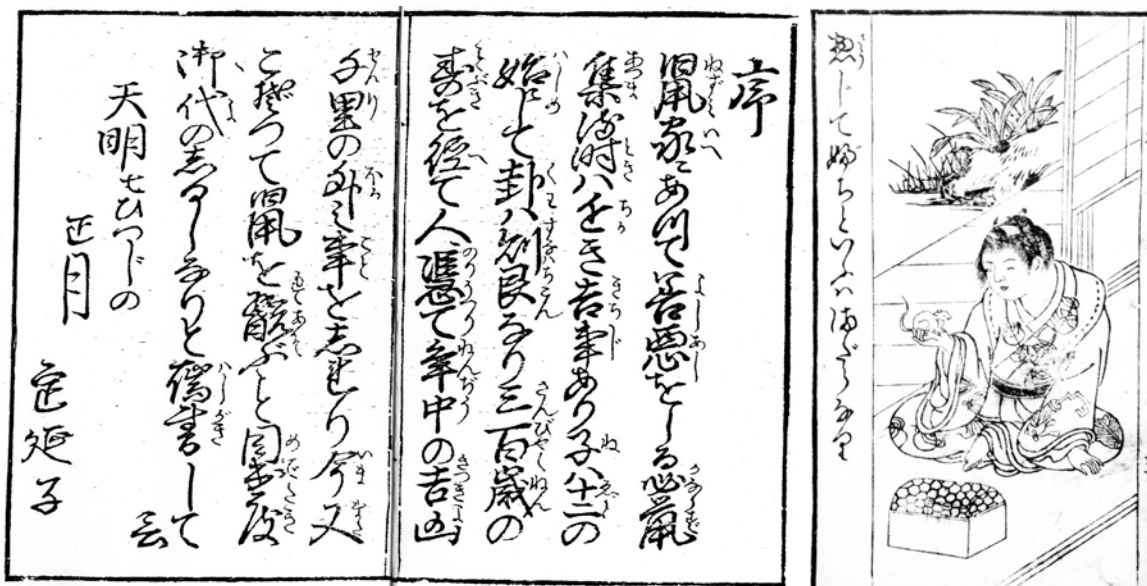 惣じてぶちといふハまだらなり
序
鼠家にあつて善悪をしる必鼠
集る時ハ近き吉事あり子ハ十二の
始にして卦ハ則艮なり三百歳の
寿を経て人に憑て年中の吉凶
千里の外の事を志れり今又
こぞつて鼠を翫ぶこと目出度
御代の志るしなりと端書して
云
天明七ひつじの
正月
定延子